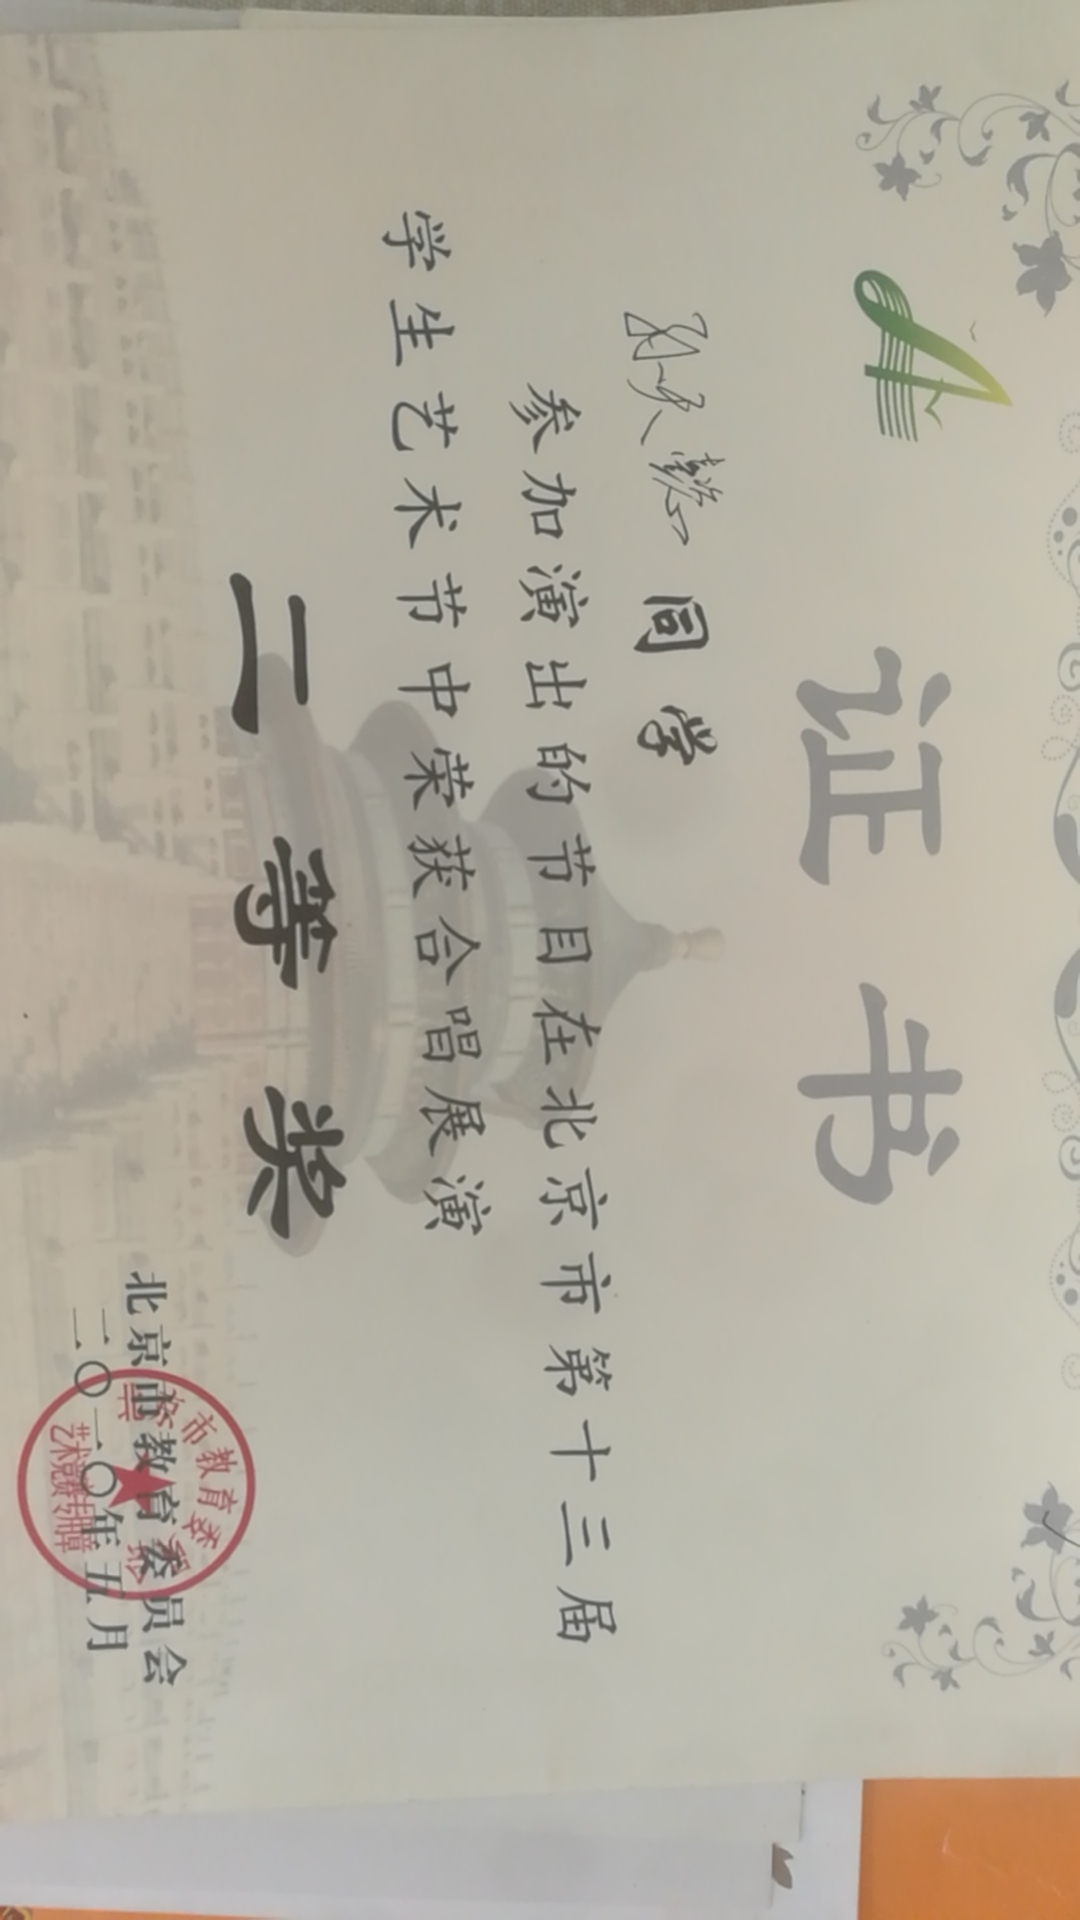 证书
同学
参加演出的节目在北京市第十三届
学生艺术节中荣获合唱展演
二等奖
北京市教育委员会
二〇一〇年五月
艺术竞赛专用章